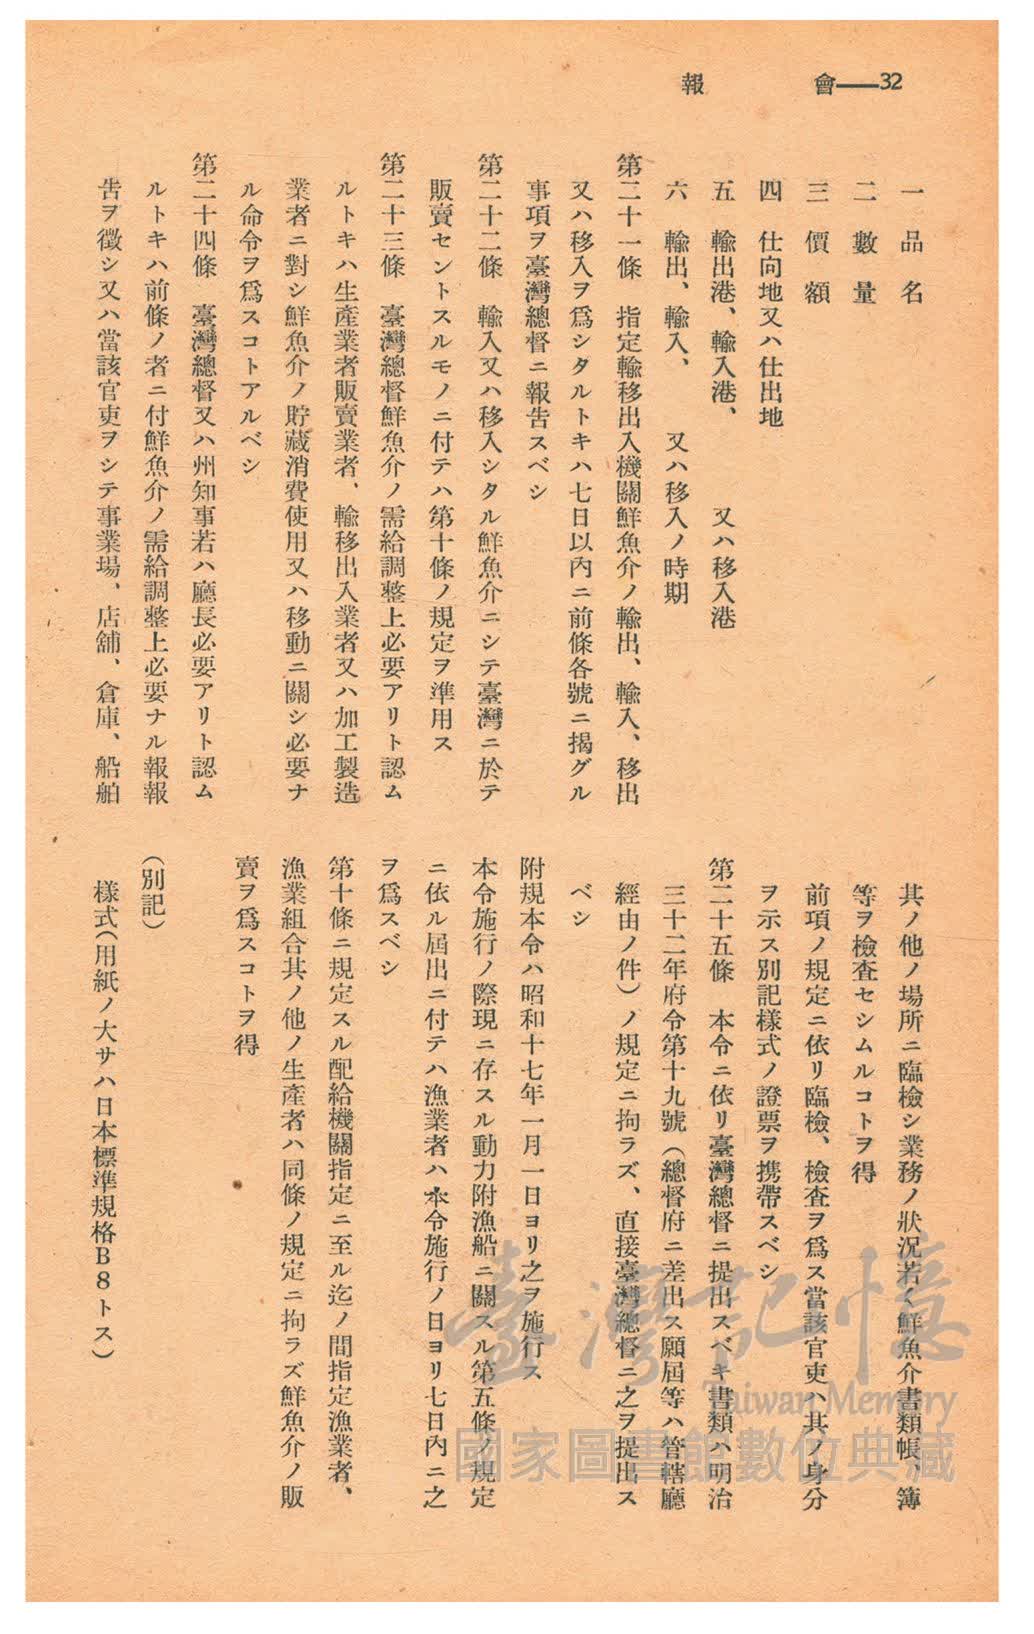 32——會報
一 品名
二 數量
三 價額
四 仕向地又ハ仕出地
五 輸出港、輸入港、 又ハ移入港
六 輸出、輸入、 又ハ移入ノ時期
第二十一條 指定輸移出入機關鮮魚介ノ輸出、輸入、移出
又ハ移入ヲ爲シタルトキハ七日以內ニ前條各號ニ揭グル
事項ヲ臺灣總督ニ報告スベシ
第二十二條 輸入又ハ移入シタル鮮魚介ニシテ臺灣ニ於テ
販賣セントスルモノニ付テハ第十條ノ規定ヲ準用ス
第二十三條 臺灣總督鮮魚介ノ需給調整上必要アリト認ム
ルトキハ生產業者販賣業者、輸移出入業者又ハ加工製造
業者ニ對シ鮮魚介ノ貯藏消費使用又ハ移動ニ關シ必要ナ
ル命令ヲ爲スコトアルベシ
第二十四條 臺灣總督又ハ州知事若ハ廳長必要アリト認ム
ルトキハ前條ノ者ニ付鮮魚介ノ需給調整上必要ナル報報
告ヲ徵シ又ハ當該官吏ヲシテ事業場、店舖、倉庫、船舶
其ノ他ノ場所ニ臨檢シ業務ノ狀況若ク鮮魚介書類帳、簿
等ヲ檢査セシムルコトヲ得
前項ノ規定ニ依リ臨檢、檢査ヲ爲ス當該官吏ハ其ノ身分
ヲ示ス別記樣式ノ證票ヲ携帶スベシ
第二十五條 本令ニ依リ臺灣總督ニ提出スベキ書類ハ明治
三十二年府令第十九號（總督府ニ差出ス願屆等ハ管轄廳
經由ノ件）ノ規定ニ拘ラズ、直接臺灣總督ニ之ヲ提出ス
ベシ
附規本令ハ昭和十七年一月一日ヨリ之ヲ施行ス
本令施行ノ際現ニ存スル動力附漁船ニ關スル第五條ノ規定
ニ依ル屆出ニ付テハ漁業者ハ本令施行ノ日ヨリ七日內ニ之
ヲ爲スベシ
第十條ニ規定スル配給機關指定ニ至ル迄ノ間指定漁業者、
漁業組合其ノ他ノ生產者ハ同條ノ規定ニ拘ラズ鮮魚介ノ販
賣ヲ爲スコトヲ得
（別記）
樣式（用紙ノ大サハ日本標準規格B8トス）
臺灣記憶
Taiwan Memory
國家圖書館數位典藏